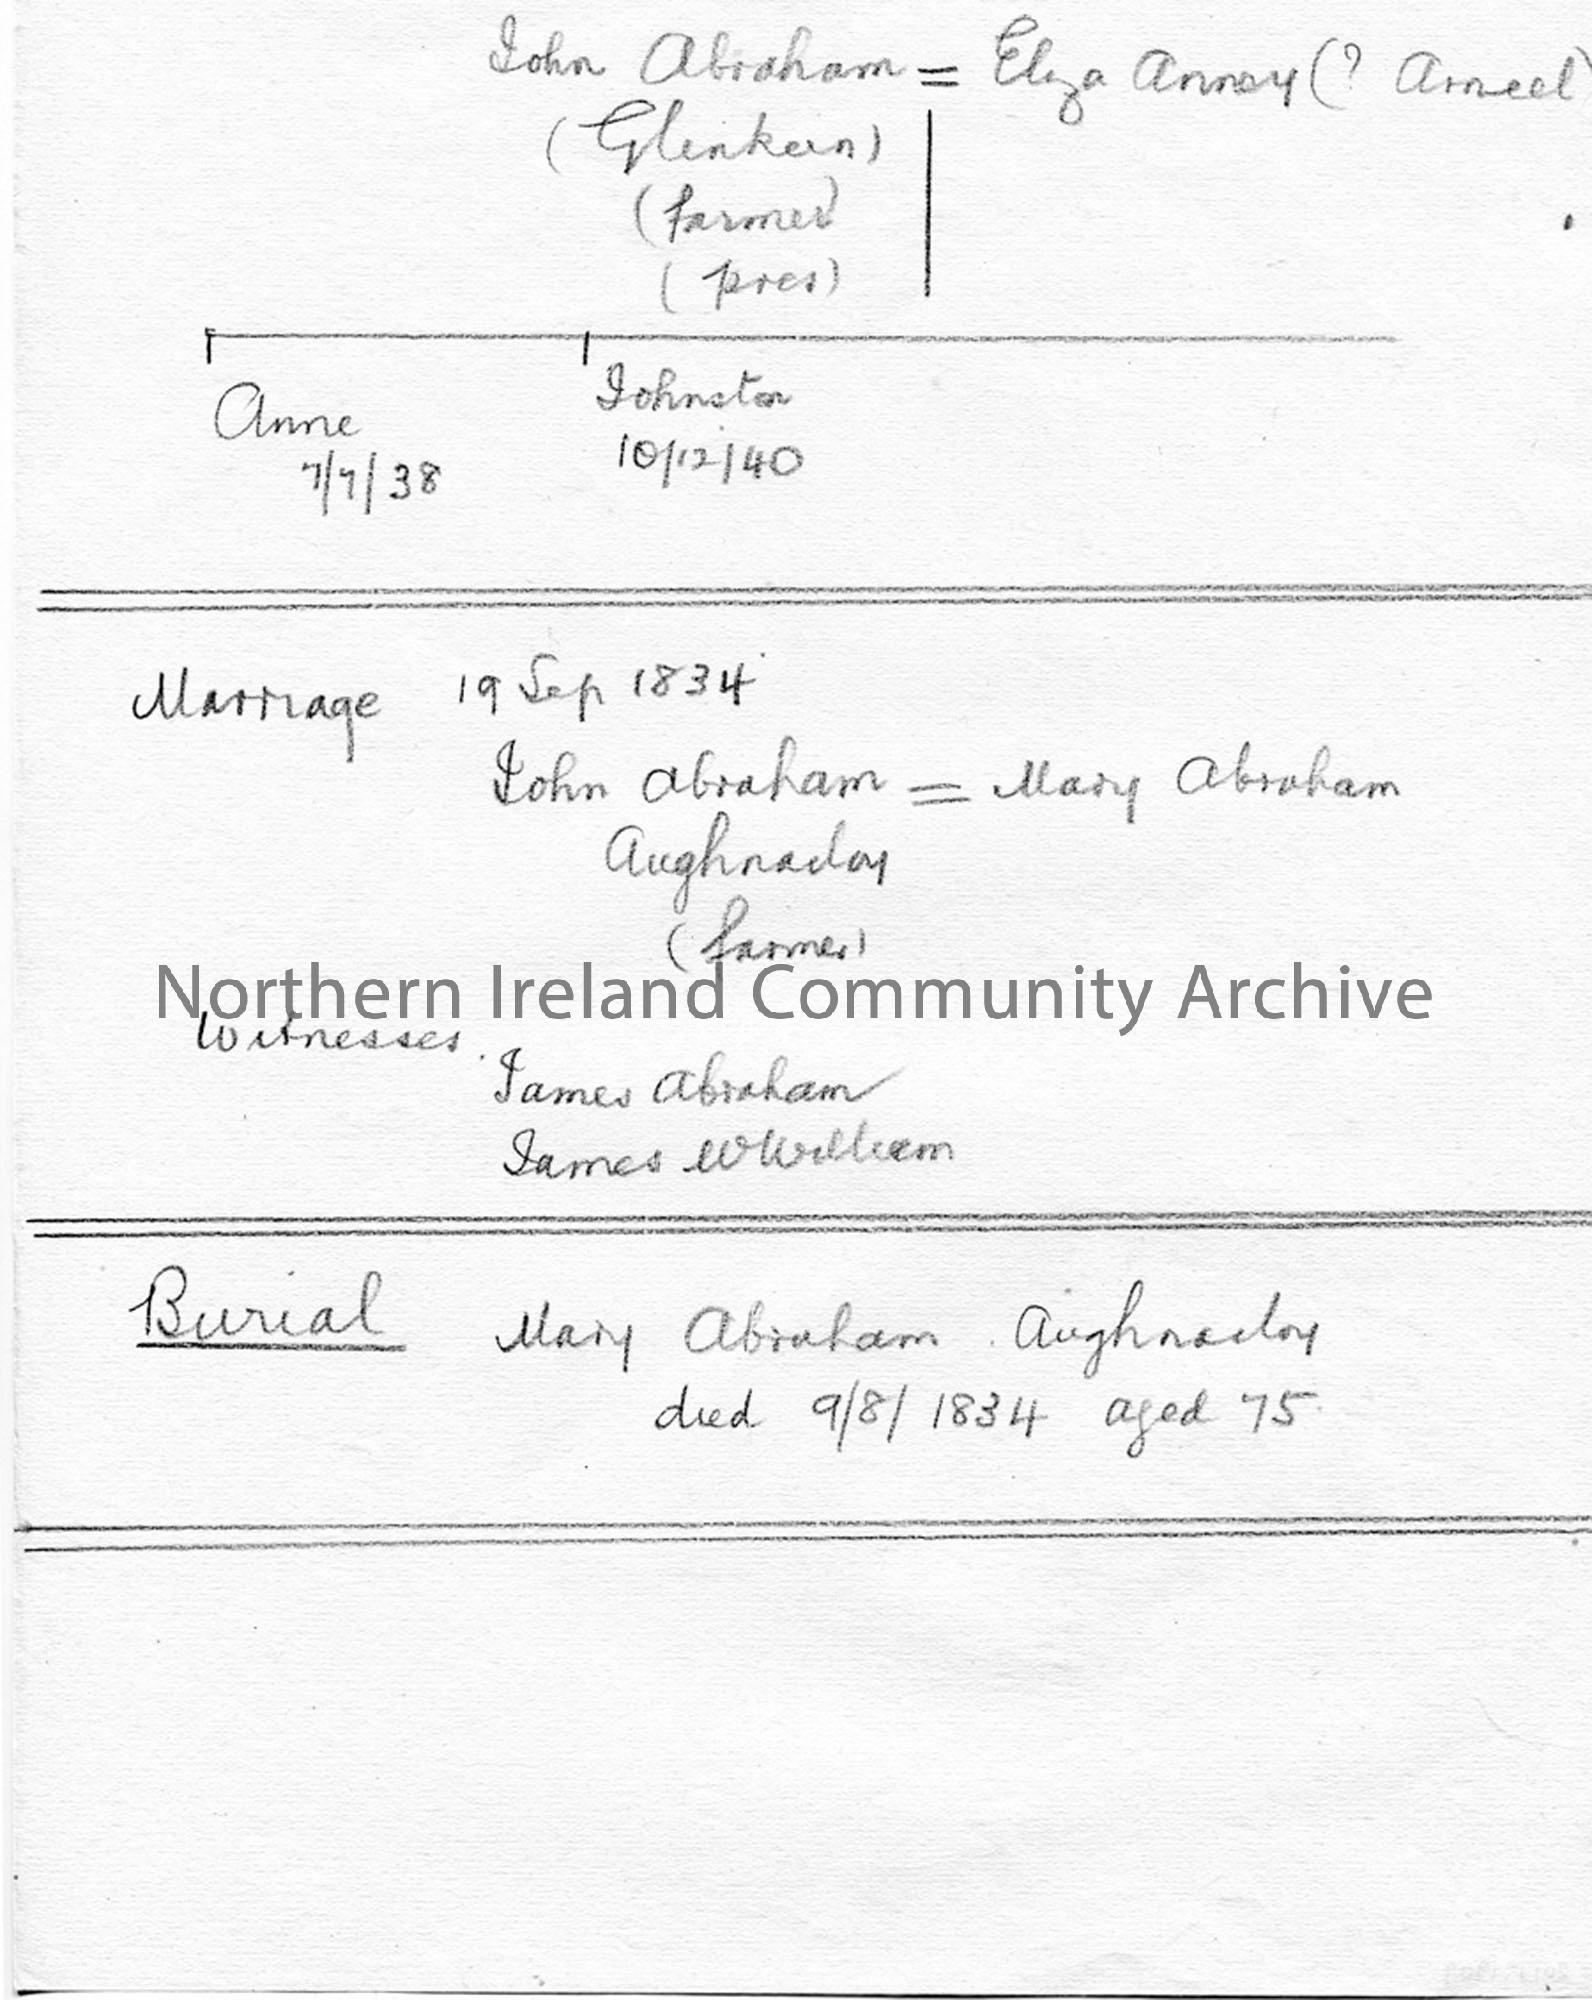 John Abraham = Eliza Annoy (? Arneel)
(Glenkeen)
(farmer)
(pres)
Anne
7/7/38
Johnston
10/12/40
Marriage 19 Sep 1834
John Abraham = Mary Abraham
Aughnacloy
(farmer)
Northern Ireland Community Archive
Witnesses.
James Abraham
James
Burial Mary Abraham. Aughnacloy
died 9/8/1834 aged 75